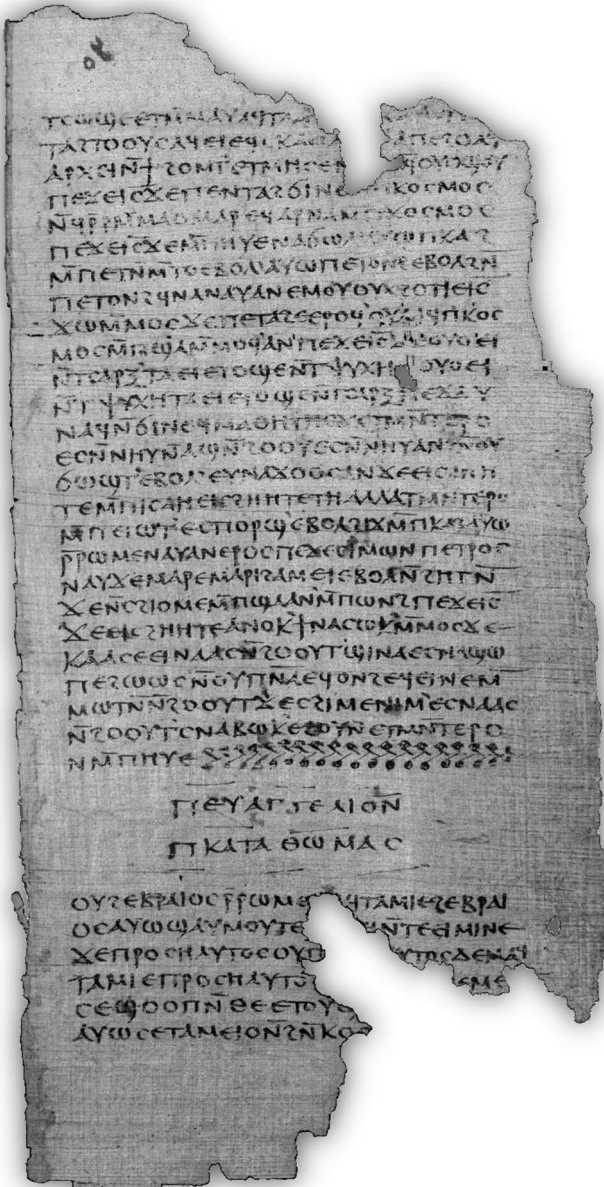 ⲧⲥⲱϣⲉⲉⲧⲙ̄ⲙⲁⲩⲁϥⲧⲁ
ⲧⲁϩⲧⲟⲟⲩⲥⲁϥⲉⲓⲉϥⲥⲕⲁⲉⲓ ⲁⲡⲉϩⲟⲁϥ
ⲁⲣⲭⲉⲓⲛ̄ϯϩⲟⲙⲧⲉⲧⲙⲏⲥⲉ
ⲡⲉϫⲉⲓ̅ⲥ̅ϫⲉⲡⲉⲛⲧⲁϩϭⲓⲛⲉ ⲕⲟⲥⲙⲟⲥ
ⲛ̄ϥⲣ̄ⲣⲙ̄ⲙⲁⲟⲙⲁⲣⲉϥⲁⲣⲛⲁⲙ̄ⲡⲕⲟⲥⲙⲟⲥ
ⲡⲉϫⲉⲓ̅ⲥ̅ϫⲉⲙ̄ⲡⲏⲩⲉⲛⲁϭⲱⲗⲁⲩⲱⲡⲕⲁϩ
ⲙ̄ⲡⲉⲧⲛ̄ⲙ̄ⲧⲟⲉⲃⲟⲗⲁⲩⲱⲡⲉⲧⲟⲛϩⲉⲃⲟⲗϩⲛ̄
ⲡⲉⲧⲟⲛϩϥⲛⲁⲛⲁⲩⲁⲛⲉⲙⲟⲩⲟⲩⲭϩⲟⲧⲓⲉⲓ̅ⲥ̅
ϫⲱⲙ̄ⲙⲟⲥϫⲉⲡⲉⲧⲁϩⲉⲉⲣⲟϥⲟⲩⲁⲁϥⲡⲕⲟⲥ
ⲙⲟⲥⲙ̄ⲡϣⲁⲙ̄ⲙⲟϥⲁⲛⲡⲉϫⲉⲓ̅ⲥ̅ϫⲉⲟⲩⲟⲉⲓ
ⲛ̄ⲧⲥⲁⲣⲝⲧⲁⲉⲓⲉⲧⲟϣⲉⲛ̄ⲧⲯⲩⲭⲏⲟⲩⲟⲉⲓ
ⲛ̄ⲧⲯⲩⲭⲏⲧⲁⲉⲓⲉⲧⲟϣⲉⲛ̄ⲧⲥⲁⲣⲝⲡⲉϫⲁⲩ
ⲛⲁϥⲛ̄ϭⲓⲛⲉϥⲙⲁⲑⲏⲧⲏⲥϫⲉⲧⲙⲛ̄ⲧⲉⲣⲟ
ⲉⲥⲛ̄ⲛⲏⲩⲛ̄ⲁϣⲛ̄ϩⲟⲟⲩⲉⲥⲛ̄ⲛⲏⲩⲁⲛϩⲛ̄ⲟⲩ
ϭⲱϣⲧⲉⲃⲟⲗⲉⲩⲛⲁϫⲟⲟⲥⲁⲛϫⲉⲉⲓⲥϩⲏⲏ
ⲧⲉⲙ̄ⲡⲓⲥⲁⲏⲉⲓⲥϩⲏⲏⲧⲉⲧⲏⲁⲗⲗⲁⲧⲙⲛ̄ⲧⲉⲣⲟ
ⲙ̄ⲡⲉⲓⲱⲧⲉⲥⲡⲟⲣϣⲉⲃⲟⲗϩⲓϫⲙ̄ⲡⲕⲁϩⲁⲩⲱ
ⲣ̄ⲣⲱⲙⲉⲛⲁⲩⲁⲛⲉⲣⲟⲥⲡⲉϫⲉⲥⲓⲙⲱⲛⲡⲉⲧⲣⲟⲥ
ⲛⲁⲩϫⲉⲙⲁⲣⲉⲙⲁⲣⲓϩⲁⲙⲉⲓⲉⲃⲟⲗⲛ̄ϩⲏⲧⲛ̄
ϫⲉⲛ̄ⲥϩⲓⲟⲙⲉⲙ̄ⲡϣⲁⲁⲛⲙ̄ⲡⲱⲛϩⲡⲉϫⲉⲓ̅ⲥ̅
ϫⲉⲉⲓⲥϩⲏⲏⲧⲉⲁⲛⲟⲕϯⲛⲁⲥⲱⲕⲙ̄ⲙⲟⲥϫⲉ
ⲕⲁⲁⲥⲉⲉⲓⲛⲁⲁⲥⲛ̄ϩⲟⲟⲩⲧϣⲓⲛⲁⲉⲥⲛⲁϣⲱ
ⲡⲉϩⲱⲱⲥⲛ̄ⲟⲩⲡ̅ⲛ̅ⲁ̅ⲉϥⲟⲛϩⲉϥⲉⲓⲛⲉⲙ̄
ⲙⲱⲧⲛ̄ⲛ̄ϩⲟⲟⲩⲧϫⲉⲥϩⲓⲙⲉⲛⲓⲙⲉⲥⲛⲁⲁⲥ
ⲛ̄ϩⲟⲟⲩⲧⲥⲛⲁⲃⲱⲕⲉϩⲟⲩⲛⲉⲧⲙⲛ̄ⲧⲉⲣⲟ
ⲛⲙ̄ⲡⲏⲩⲉ
ⲡⲉⲩⲁⲅⲅⲉⲗⲓⲟⲛ
ⲡⲕⲁⲧⲁⲑⲱⲙⲁⲥ
ⲟⲩϩⲉⲃⲣⲁⲓⲟⲥⲣ̄ⲣⲱⲙⲉ ϥⲧⲁⲙⲓⲉϩⲉⲃⲣⲁⲓ
ⲟⲥⲁⲩⲱϣⲁⲩⲙⲟⲩⲧⲉ ⲛ̄ⲧⲉⲉⲓⲙⲓⲛⲉ
ϫⲉⲡⲣⲟⲥⲏⲗⲩⲧⲟⲥⲟⲩⲡ ⲩⲧⲟⲥⲇⲉⲙⲁϥ
ⲧⲁⲙⲓⲉⲡⲣⲟⲥⲏⲗⲩⲧⲟⲥ ⲉⲙⲉ
ⲥⲉϣⲟⲟⲡⲛ̄ⲑⲉⲉⲧⲟⲩ
ⲁⲩⲱⲥⲉⲧⲁⲙⲉⲓⲟⲛ̄ϩⲛ̄ⲕⲟ